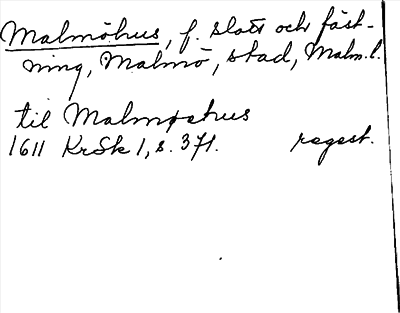 Malmöhus, f. slott och fäst-
ning, Malmö, stad, Malm.l.
til Malmøehus
1611 KrSk 1, s. 371. regest.